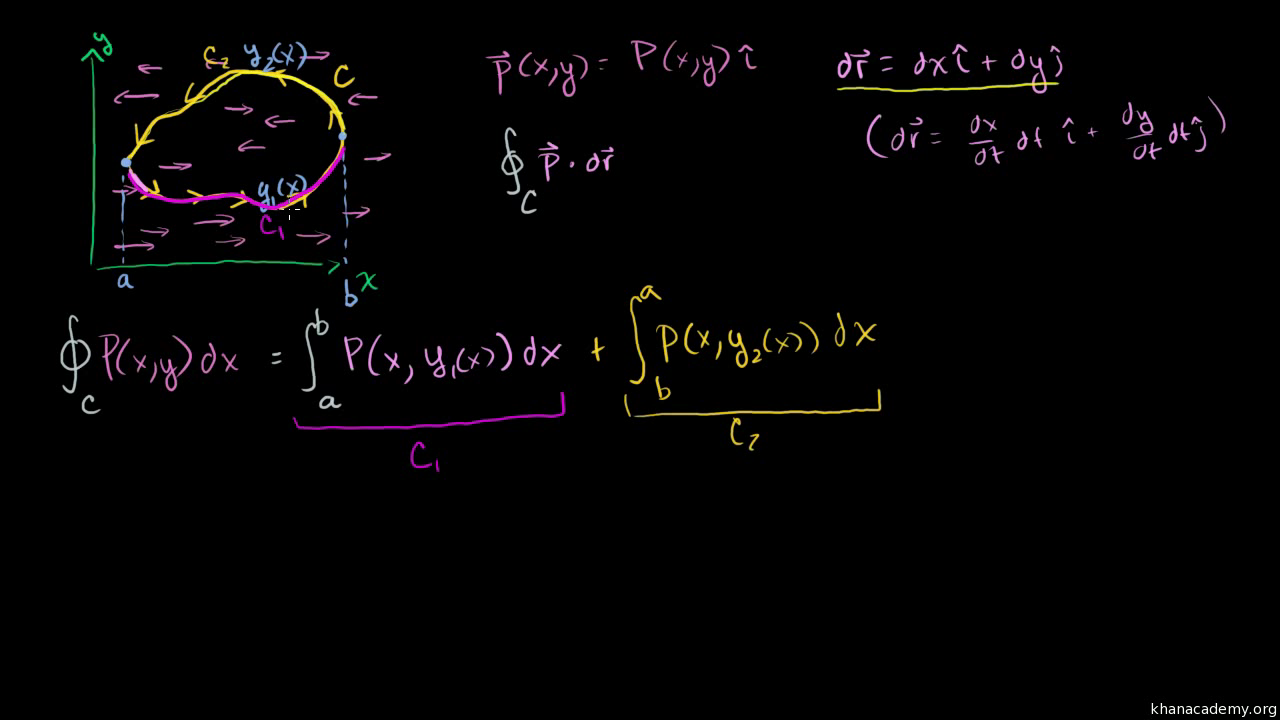 y
C₂ y₂(x)
C
y₁(x)
C₁
a
b
x
P⃗(x,y) = P(x,y) î
dr⃗ = dx î + dy ĵ
(dr⃗ = dx/dt dt î + dy/dt dt ĵ)
∮_C P⃗ · dr⃗
∮_C P(x,y) dx = ∫_a^b P(x, y₁(x)) dx + ∫_b^a P(x, y₂(x)) dx
C₁
C₂
khanacademy.org